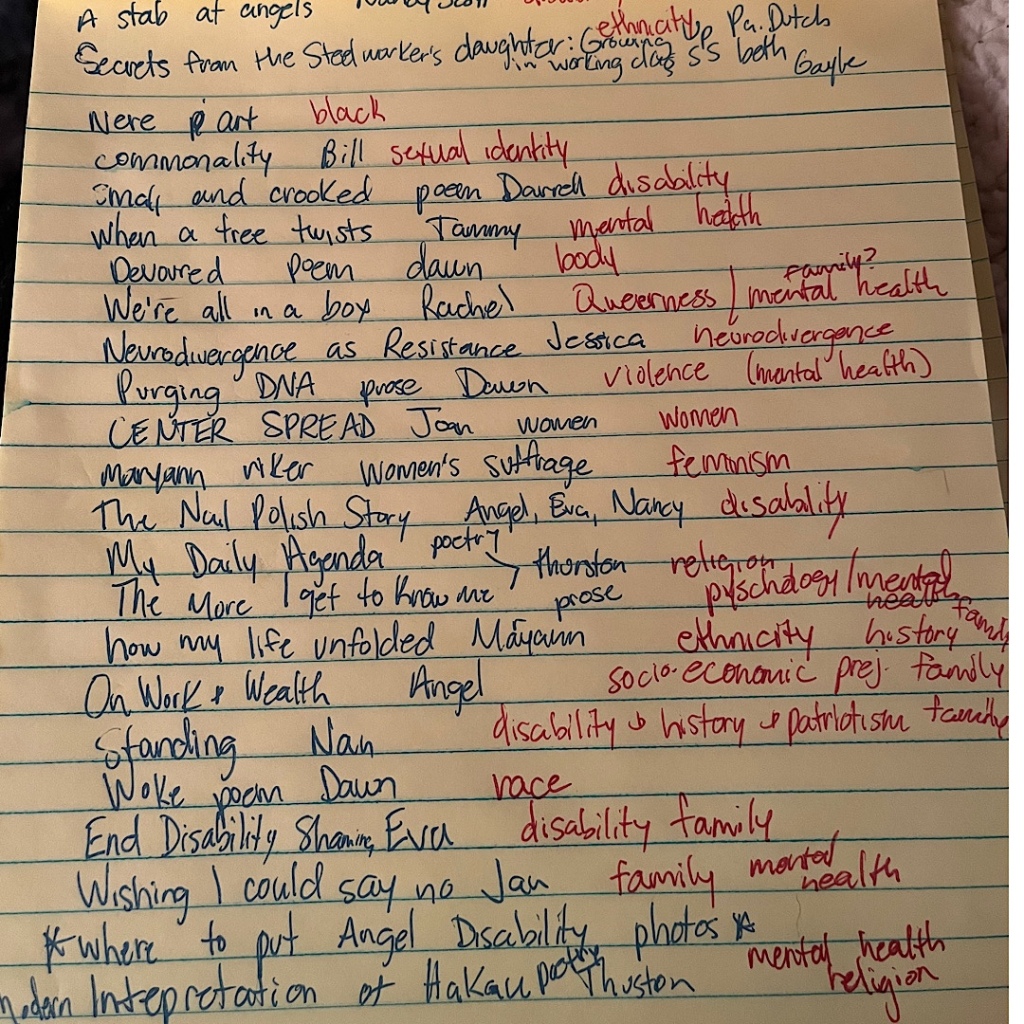 A stab at angels Nancy Scott
Secrets from the Steelworker's daughter: Growing up Pa. Dutch ethnicity
in working class SS beth Gayle
Nere art black
commonality Bill sexual identity
Small and crooked poem Darrell disability
when a tree twists Tammy mental health
Devoured poem dawn body
We're all in a box Rachel Queerness / mental health family?
Neurodivergence as Resistance Jessica neurodivergence
Purging DNA prose Dawn violence (mental health)
CENTER SPREAD Joan women women
Maryann riker women's suffrage feminism
The Nail Polish Story Angel, Eva, Nancy disability
My Daily Agenda poetry thurston religion
The More I get to know me prose pyschology/mental health
how my life unfolded Maryann ethnicity history family
On Work + Wealth Angel socio-economic prej. family
Standing Nan disability + history + patriotism family
Woke poem Dawn race
End Disability Shaming Eva disability family
Wishing I could say no Jan family mental health
* where to put Angel Disability photos *
Modern Intepretation of HaKau poetry Thuston mental health religion